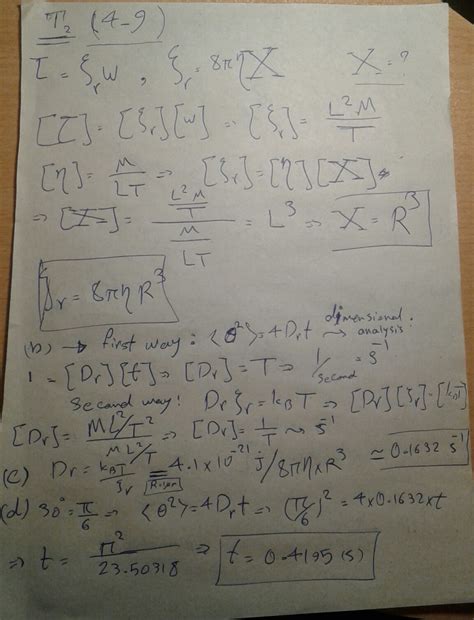 T₂ (4-9)
τ = ξᵣ w , ξᵣ = 8πηX X = ?
[τ] = [ξᵣ][w] ... [ξᵣ] = L²M/T
[η] = M/LT → [ξᵣ] = [η][X].
⇒ [X] = (L²M/T)/(M/LT) = L³ ⇒ X = R³
ξᵣ = 8πηR³
(b) → first way: ⟨θ²⟩ = 4Dᵣt ⤳ dimensional analysis
1 = [Dᵣ][t] ⇒ [Dᵣ] = T ⇒ 1/second = s⁻¹
second way: Dᵣ ξᵣ = k_B T ⇒ [Dᵣ][ξᵣ] = [k_BT]
[Dᵣ] = (ML²/T²)/(ML²/T) ⇒ [Dᵣ] = 1/T ⤳ s⁻¹
(c) Dᵣ = k_BT/ξᵣ = 4.1×10⁻²¹ J/8πη×R³ ≃ 0.1632 s⁻¹
(d) 30° = π/6 ⇒ ⟨θ²⟩ = 4Dᵣt ⇒ (π/6)² = 4×0.1632×t
⇒ t = π²/23.50318 ⇒ t = 0.4195 (s)